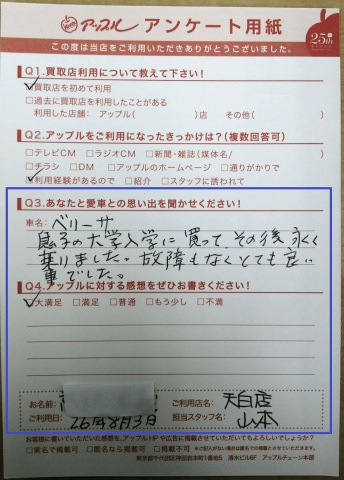 アップル アンケート用紙
25th
この度は当店をご利用いただきありがとうございました。
Q1.買取店利用について教えて下さい!
□買取店を初めて利用
□過去に買取店を利用したことがある
利用した店舗: アップル( )店 その他( )
Q2.アップルをご利用になったきっかけは?(複数回答可)
□テレビCM □ラジオCM □新聞・雑誌(媒体名/ )
□チラシ □DM □アップルのホームページ □通りがかりで
□利用経験があるので □紹介 □スタッフに誘われて
Q3.あなたと愛車との思い出を聞かせください!
車名: ベリーサ
息子の大学入学に買って、その後永く
乗りました。故障もなくとても良い
車でした。
Q4.アップルに対する感想をぜひお書きください!
□大満足 □満足 □普通 □もう少し □不満
お名前: ご利用店名: 天白店
ご利用日: 26年8月3日 担当スタッフ名: 山本
お客様に書いていただいた感想を、アップルHPや広告に掲載させていただいてもよろしいでしょうか?
□実名で掲載可 □匿名なら掲載可 □掲載不可 ※ご記入がない場合は掲載不可とさせていただきます。
東京都千代田区神田岩本町1番地5 清水ビル6F アップルチェーン本部